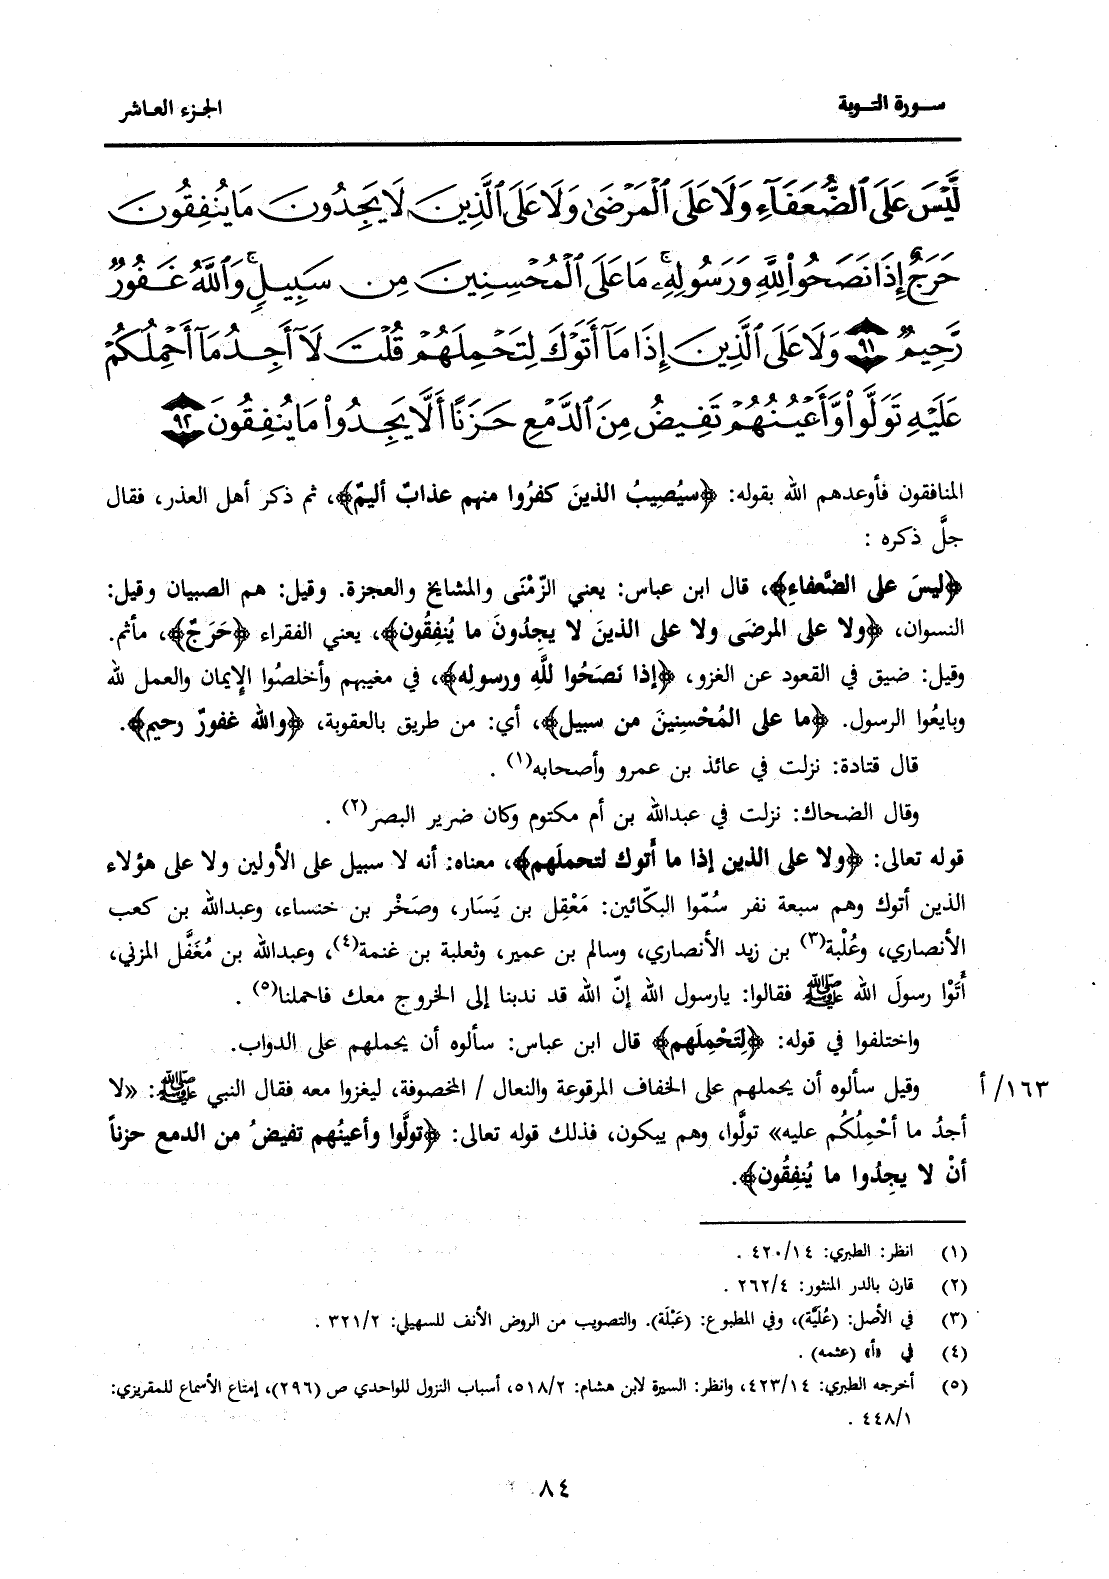 سورة التوبة
الجزء العاشر
لَّيْسَ عَلَى ٱلضُّعَفَآءِ وَلَا عَلَى ٱلْمَرْضَىٰ وَلَا عَلَى ٱلَّذِينَ لَا يَجِدُونَ مَا يُنفِقُونَ
حَرَجٌ إِذَا نَصَحُوا۟ لِلَّهِ وَرَسُولِهِۦ ۚ مَا عَلَى ٱلْمُحْسِنِينَ مِن سَبِيلٍ ۚ وَٱللَّهُ غَفُورٌ
رَّحِيمٌ ٩١ وَلَا عَلَى ٱلَّذِينَ إِذَا مَآ أَتَوْكَ لِتَحْمِلَهُمْ قُلْتَ لَآ أَجِدُ مَآ أَحْمِلُكُمْ
عَلَيْهِ تَوَلَّوا۟ وَّأَعْيُنُهُمْ تَفِيضُ مِنَ ٱلدَّمْعِ حَزَنًا أَلَّا يَجِدُوا۟ مَا يُنفِقُونَ ٩٢
المنافقون فأوعدهم الله بقوله: ﴿سيُصِيبُ الذينَ كفرُوا منهم عذابٌ أليمٌ﴾، ثم ذكر أهل العذر، فقال
جلَّ ذكره :
﴿ليسَ على الضَّعفاءِ﴾، قال ابن عباس: يعني الزّمْنَى والمشايخ والعجزة. وقيل: هم الصبيان وقيل:
النسوان، ﴿ولا على المرضَى ولا على الذينَ لا يجِدُونَ ما يُنفِقُون﴾، يعني الفقراء ﴿حَرَجٌ﴾، مأثم.
وقيل: ضيق في القعود عن الغزو، ﴿إذا نَصَحُوا للَّهِ ورسولِه﴾، في مغيبهم وأخلصُوا الإيمان والعمل لله
وبايعُوا الرسول. ﴿ما على المُحْسِنِينَ من سبيل﴾، أي: من طريق بالعقوبة، ﴿والله غفورٌ رحيم﴾.
قال قتادة: نزلت في عائذ بن عمرو وأصحابه(١) .
وقال الضحاك: نزلت في عبدالله بن أم مكتوم وكان ضرير البصر(٢) .
قوله تعالى: ﴿ولا على الذين إذا ما أَتوك لتحملَهم﴾، معناه: أنه لا سبيل على الأولين ولا على هؤلاء
الذين أتوك وهم سبعة نفر سُمّوا البكّائين: مَعْقِل بن يَسَار، وصَخْر بن خنساء، وعبدالله بن كعب
الأنصاري، وعُلْبة(٣) بن زيد الأنصاري، وسالم بن عمير، وثعلبة بن غنمة(٤)، وعبدالله بن مُغَفَّل المزني،
أَتَوْا رسولَ الله ﷺ فقالوا: يارسول الله إنّ الله قد ندبنا إلى الخروج معك فاحملنا(٥) .
واختلفوا في قوله: ﴿لِتَحْمِلَهم﴾ قال ابن عباس: سألوه أن يحملهم على الدواب.
١٦٣/ أ وقيل سألوه أن يحملهم على الخفاف المرقوعة والنعال / المخصوفة، ليغزوا معه فقال النبي ﷺ: «لا
أجدُ ما أحْمِلُكُم عليه» تولَّوا، وهم يبكون، فذلك قوله تعالى: ﴿تولَّوا وأعينُهم تفيضُ من الدمع حزناً
أنْ لا يجِدُوا ما يُنفِقُون﴾.
(١) انظر: الطبري: ٤٢٠/١٤ .
(٢) قارن بالدر المنثور: ٢٦٢/٤ .
(٣) في الأصل: (عُلَيَّة)، وفي المطبوع: (عَبْلَة). والتصويب من الروض الأنف للسهيلي: ٣٢١/٢ .
(٤) في «أ» (عثمه) .
(٥) أخرجه الطبري: ٤٢٣/١٤، وانظر: السيرة لابن هشام: ٥١٨/٢، أسباب النزول للواحدي ص (٢٩٦)، إمتاع الأسماع للمقريزي:
٤٤٨/١ .
٨٤